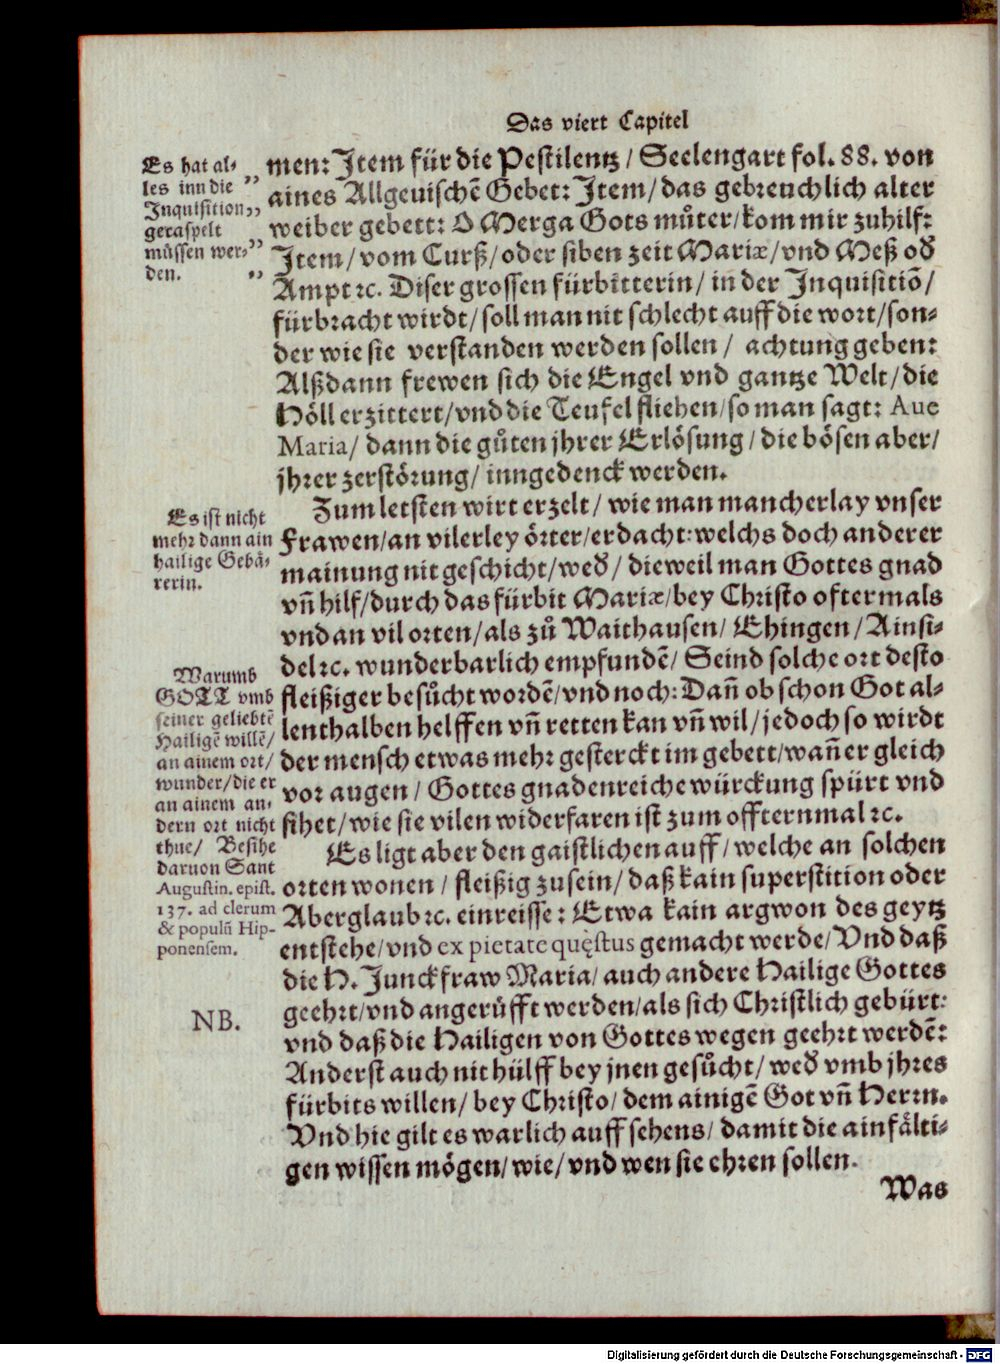 Das viert Capitel
men: Item für die Pestilentz / Seelengart fol. 88. von
aines Allgeuischē Gebet: Item / das gebreuchlich alter
weiber gebett: O Merga Gots můter / kom mir zuhilf:
Item / vom Curß / oder siben zeit Mariæ / vnd Meß oď
Ampt ꝛc. Diser grossen fürbitterin / in der Inquisitiō /
fürbracht wirdt / soll man nit schlecht auff die wort / son-
der wie sie verstanden werden sollen / achtung geben:
Alßdann frewen sich die Engel vnd gantze Welt / die
Höll erzittert / vnd die Teufel fliehen / so man sagt: Aue
Maria / dann die gůten jhrer Erlösung / die bösen aber /
jhrer zerstörung / inngedenck werden.
Zum letsten wirt erzelt / wie man mancherlay vnser
Frawen / an vilerley örter / erdacht: welchs doch anderer
mainung nit geschicht / weď / dieweil man Gottes gnad
vñ hilf / durch das fürbit Mariæ / bey Christo oftermals
vnd an vil orten / als zů Waithausen / Ehingen / Ainsi-
del ꝛc. wunderbarlich empfundē / Seind solche ort desto
fleißiger besůcht wordē / vnd noch: Dañ ob schon Got al-
lenthalben helffen vñ retten kan vñ wil / jedoch so wirdt
der mensch etwas mehr gesterckt im gebett / wañ er gleich
vor augen / Gottes gnadenreiche würckung spürt vnd
sihet / wie sie vilen widerfaren ist zum offternmal ꝛc.
Es ligt aber den gaistlichen auff / welche an solchen
orten wonen / fleißig zusein / daß kain superstition oder
Aberglaub ꝛc. einreisse: Etwa kain argwon des geytz
entstehe / vnd ex pietate quęstus gemacht werde / Vnd daß
die H. Junckfraw Maria / auch andere Hailige Gottes
geehrt / vnd angerůfft werden / als sich Christlich gebürt:
vnd daß die Hailigen von Gottes wegen geehrt werdē:
Anderst auch nit hülff bey jnen gesůcht / weď vmb jhres
fürbits willen / bey Christo / dem ainigē Got vñ Herrn.
Vnd hie gilt es warlich auff sehens / damit die ainfålti-
gen wissen mögen / wie / vnd wen sie ehren sollen.
Was
Es hat al-
les inn die
Inquisition,
geraspelt
müssen wer-
den.
Es ist nicht
mehr dann ain
hailige Gebå-
rerin.
Warumb
GOTT vmb
seiner geliebtē
Hailigē willē /
an ainem ort /
wunder / die er
an ainem an-
dern ort nicht
thue / Besihe
daruon Sant
Augustin. epist.
137. ad clerum
& populū Hip-
ponensem.
NB.
Digitalisierung gefördert durch die Deutsche Forschungsgemeinschaft - DFG